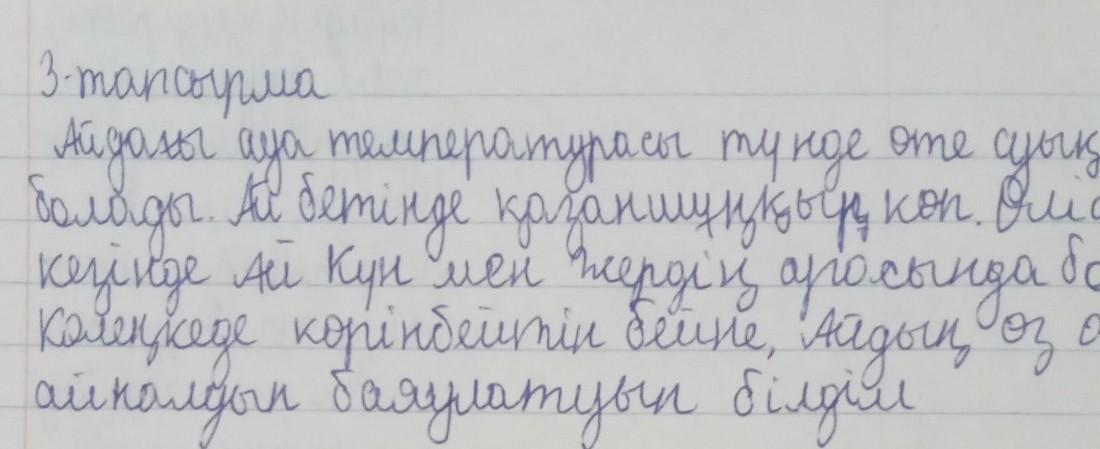 3-тапсырма
Айдағы ауа температурасы түнде өте суық
болады. Ай бетінде қазаншұңқың көп. Өліа
кезінде Ай Күн мен Жердің арасында бо
Көлеңкеде көрінбейтін бейне, Айдың өз о
айналдып баяулатуып білдім